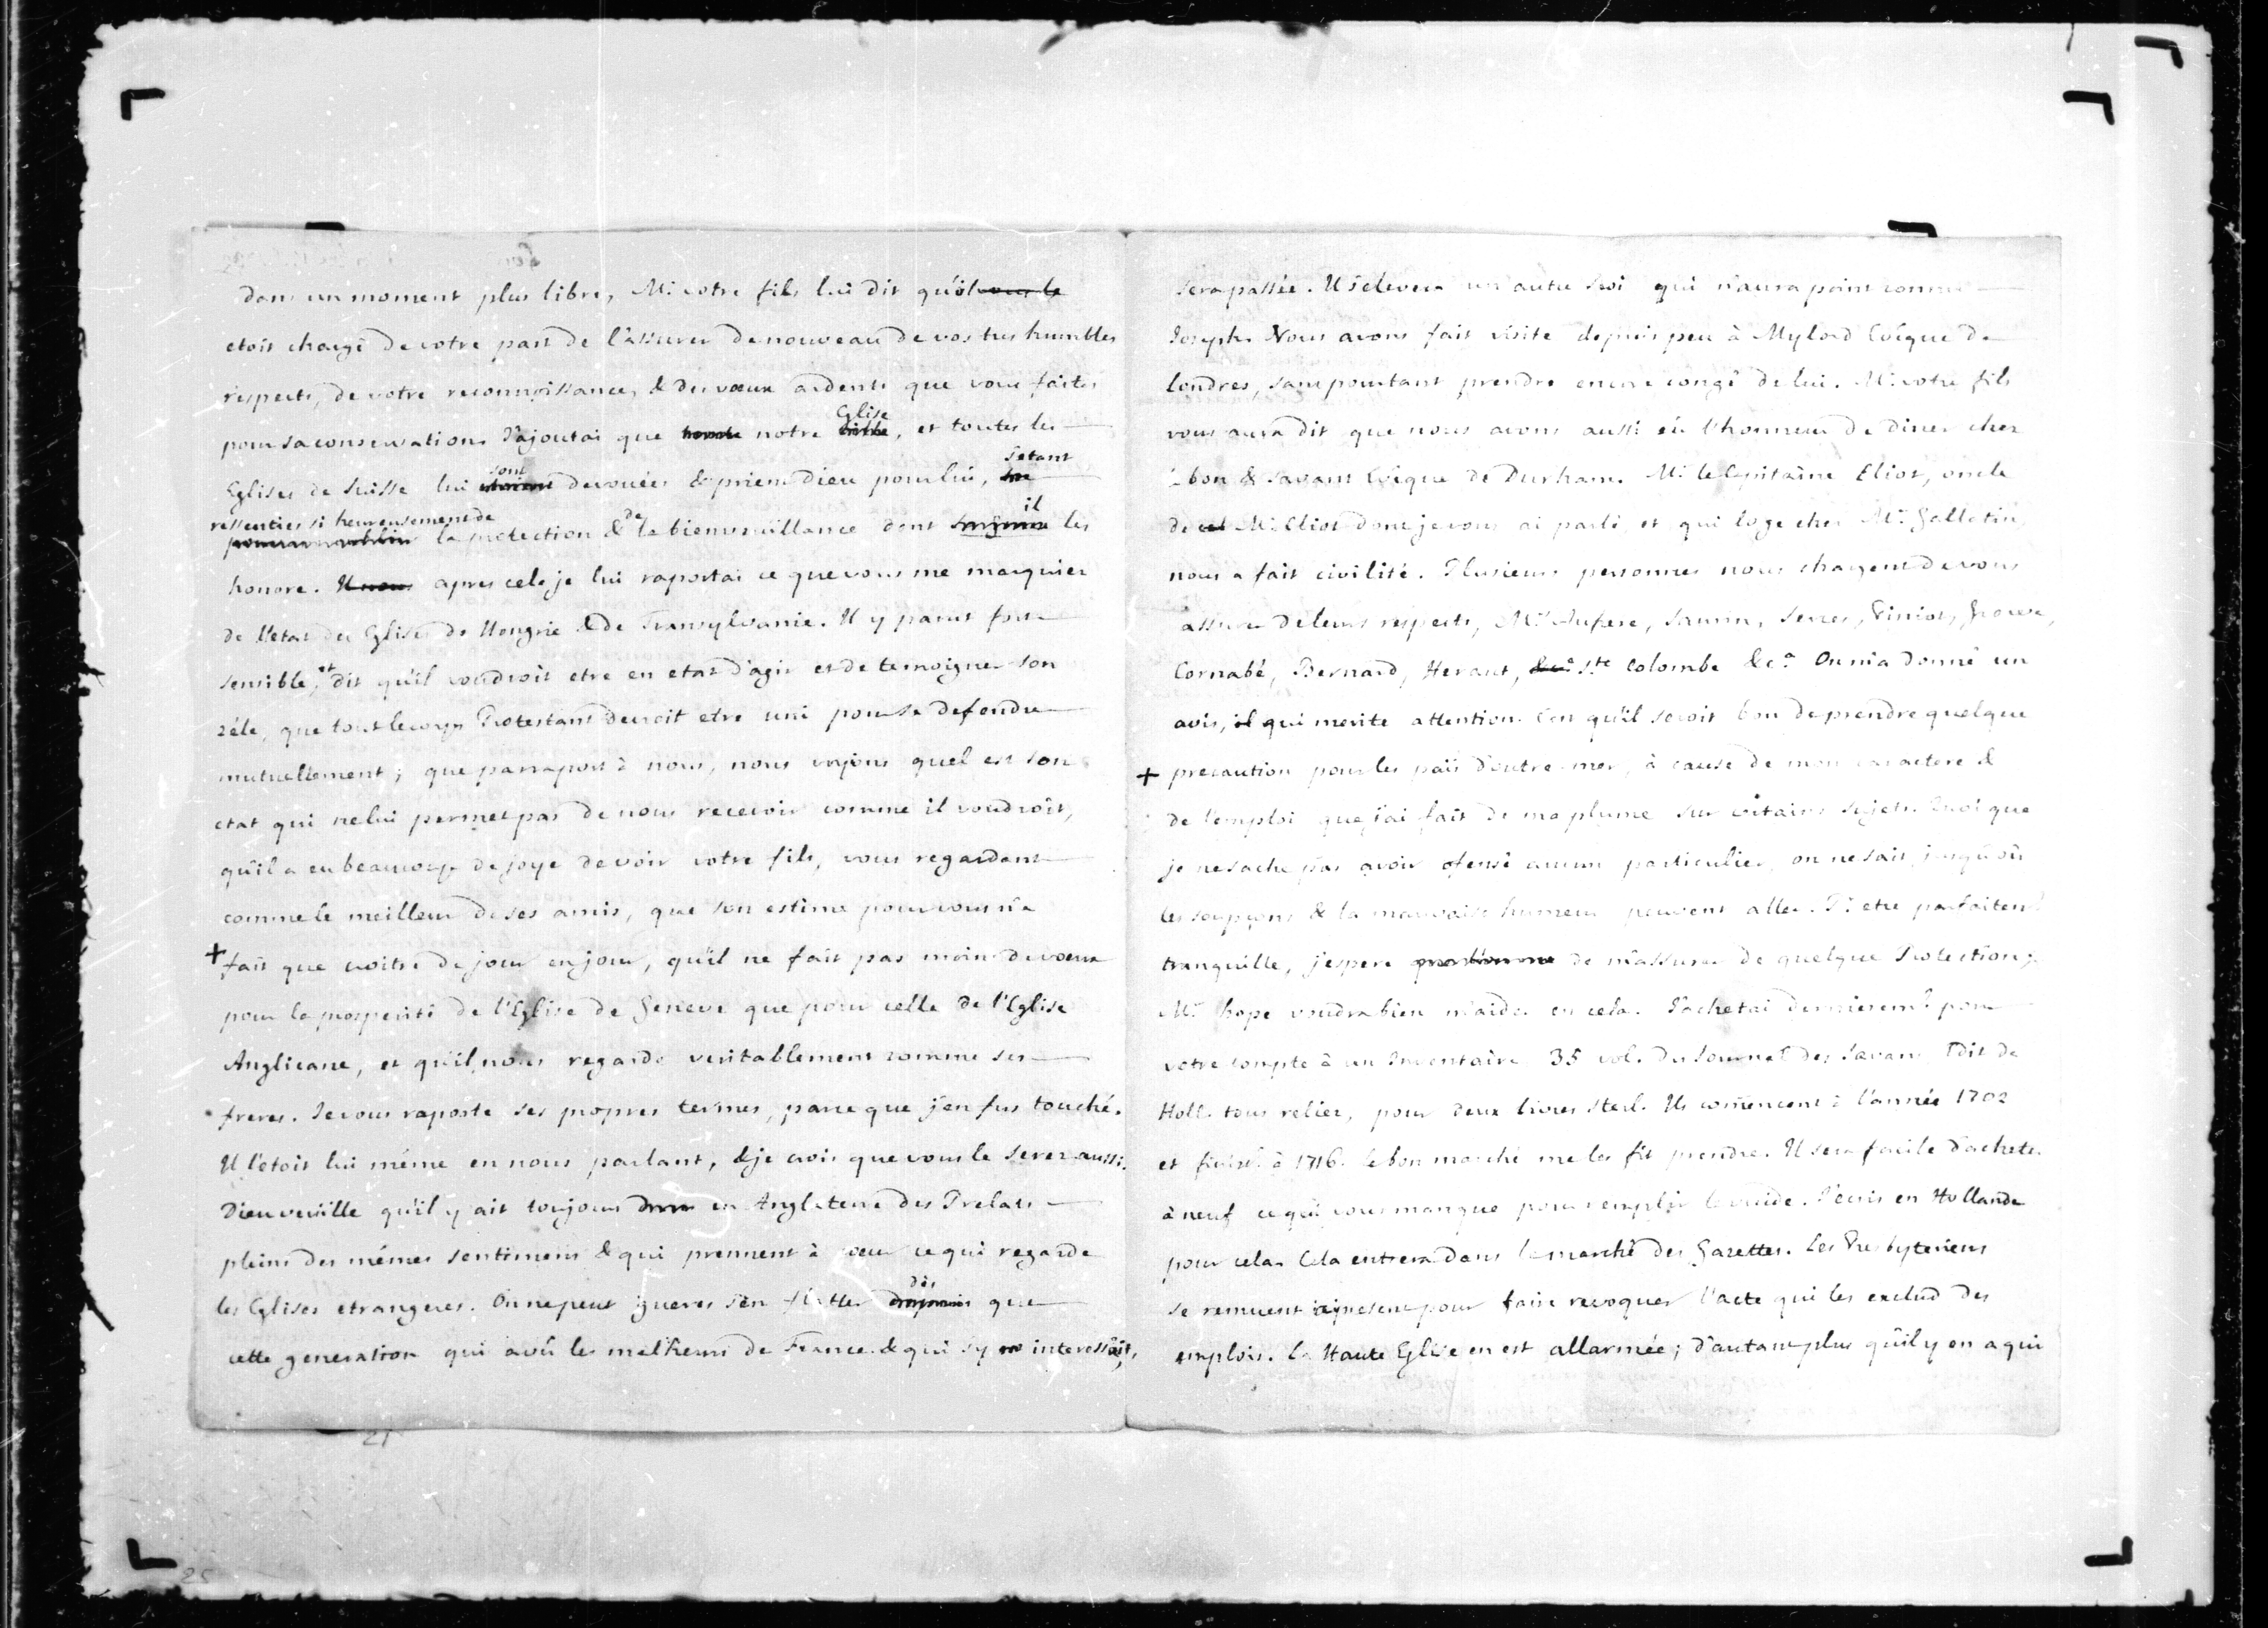 dans un moment plus libre, Mr. votre fils lui dit qu'il
etoit chargé de votre part de l'assurer de nouveau de vos tres humbles
respects, de votre reconnoissance, & des vœux ardents que vous faites
Eglise
pour sa conservation. J'ajoutai que notre , et toutes les
sont s'etant
Eglises de Suisse lui devouées & prient Dieu pour lui,
ressenties si heureusement de de il
la protection & la bienveuillance dont les
honore. apres cela je lui raportai ce que vous me marquiez
de l'etat des Eglises de Hongrie & de Transylvanie. Il y parut fort
sensible, et dit qu'il voudroit etre en etat d'agir et de temoigner son
zéle, que tout le corps Protestant devroit etre uni pour se defendre
mutuellement; que par raport à nous, nous voyions quel est son
etat qui ne lui permet pas de nous recevoir comme il voudroit,
qu'il a eu beaucoup de joye de voir votre fils, vous regardant
comme le meilleur de ses amis, que son estime pour vous n'a
+ fait que croitre de jour en jour, qu'il ne fait pas moins de vœux
pour la prosperité de l'Eglise de Geneve que pour celle de l'Eglise
Anglicane, et qu'il nous regarde veritablement comme ses
freres. Je vous raporte ses propres termes, parce que j'en fus touché.
Il l'etoit lui méme en nous parlant, & je crois que vous le serez aussi.
Dieu veuille qu'il y ait toujours en Angleterre des Prelats
pleins des mémes sentimens & qui prennent à cœur ce qui regarde
dès
les Eglises etrangeres. On ne peut gueres s'en flatter que
cette generation qui a vû les malheurs de France & qui s'y interessoit,
sera passée. Il s'elevera un autre Roi qui n'aura point connu
Joseph. Nous avons fait visite depuis peu à Mylord Evéque de
Londres, sans pourtant prendre encore congé de lui. Mr. votre fils
vous aura dit que nous avons aussi eû l'honneur de diner chez
le bon & savant Evéque de Durham. Mr. le Capitaine Eliot, oncle
de Mr. Eliot dont je vous ai parlé, et qui loge chez Mr. Gallatin
nous a fait civilité. Plusieurs personnes nous chargent de vous
assurer de leurs respects, Mrs. Aufrere, Saurin, Serces, , ,
Cornabé, Bernard, Heraut, Ste Colombe &ca. On m'a donné un
avis, qui merite attention. C'est qu'il seroit bon de prendre quelque
+ precaution pour les païs d'outre-mer, à cause de mon caractere &
de l'emploi que j'ai fait de ma plume sur certains sujets. Quoi que
je ne sache pas avoir ofensé aucun particulier, on ne sait jusqu'où
les soupçons & la mauvaise humeur peuvent aller. Pr. etre parfaitemt.
tranquille, j'espere de m'assurer de quelque Protection;
Mr. Hope voudra bien m'aider en cela. J'achetai dernieremt. pour
votre compte à un Inventaire 35 vol. du Journal des Savans Edit. de
Holl. tous reliez, pour deux livres sterl. Ils comencent à l'année 1702
et finisst. à 1716. Le bon marché me les fit prendre. Il sera facile d'acheter
à neuf ce qui vous manque pour remplir le vuide. J'ecris en Hollande
pour cela. Cela entrera dans le marché des Gazettes. Les Presbyteriens
se remuent à present pour faire revoquer l'acte qui les exclud des
emplois. La Haute Eglise en est allarmée; d'autant plus qu'il y en a qui
21
25